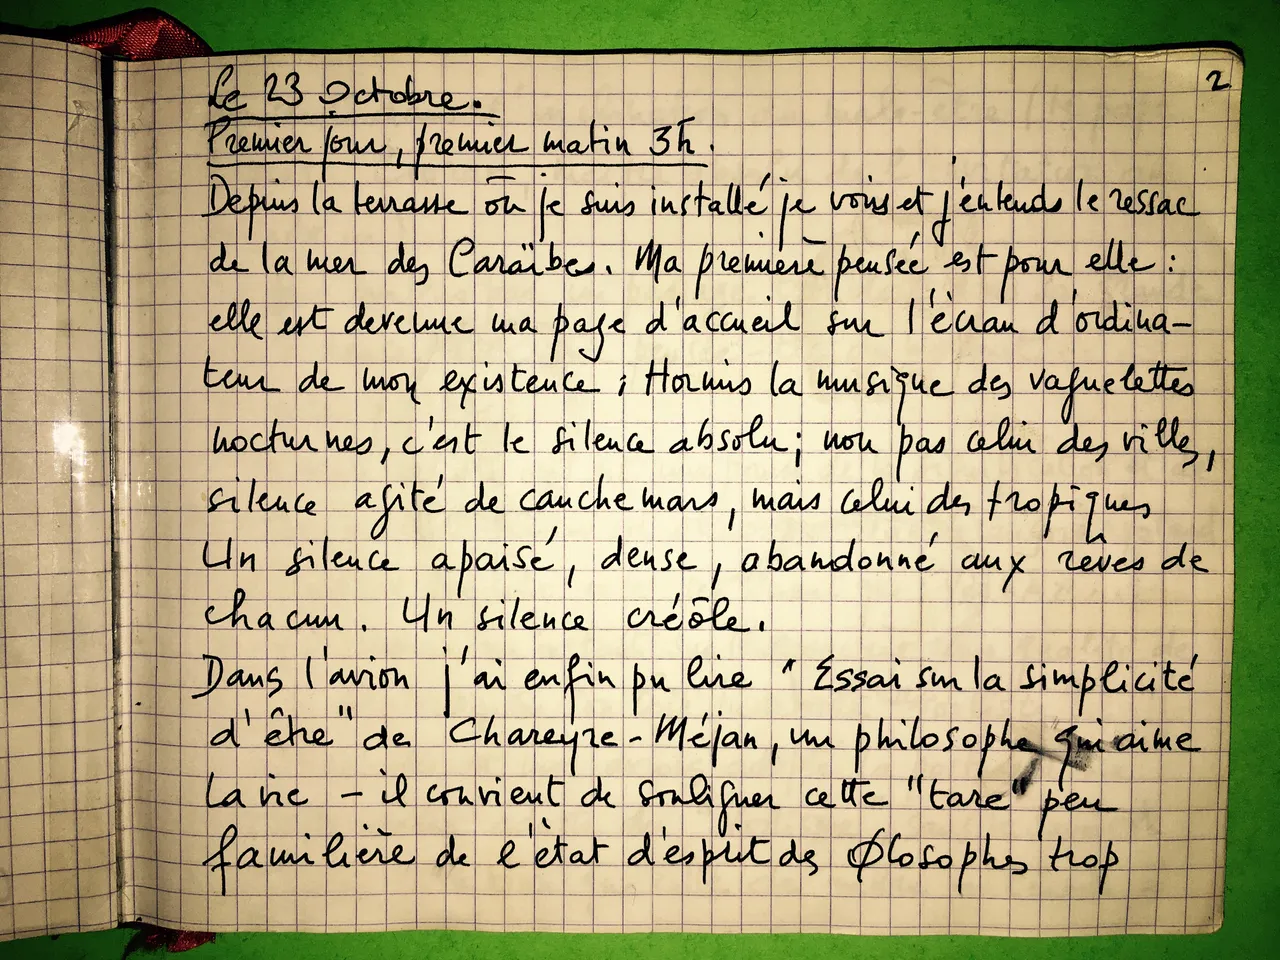 2
Le 23 Octobre.
Premier jour, premier matin 3h.
Depuis la terrasse où je suis installé je vois et j'entends le ressac
de la mer des Caraïbes. Ma première pensée est pour elle :
elle est devenue ma page d'accueil sur l'écran d'ordina-
teur de mon existence ; Hormis la musique des vaguelettes
nocturnes, c'est le silence absolu ; non pas celui des villes,
silence agité de cauchemars, mais celui des tropiques
Un silence apaisé, dense, abandonné aux rêves de
chacun. Un silence créôle.
Dans l'avion j'ai enfin pu lire "Essai sur la simplicité
d'être" de Chareyre-Méjan, un philosophe qui aime
la vie – il convient de souligner cette "tare" peu
familière de l'état d'esprit des Φlosophes trop